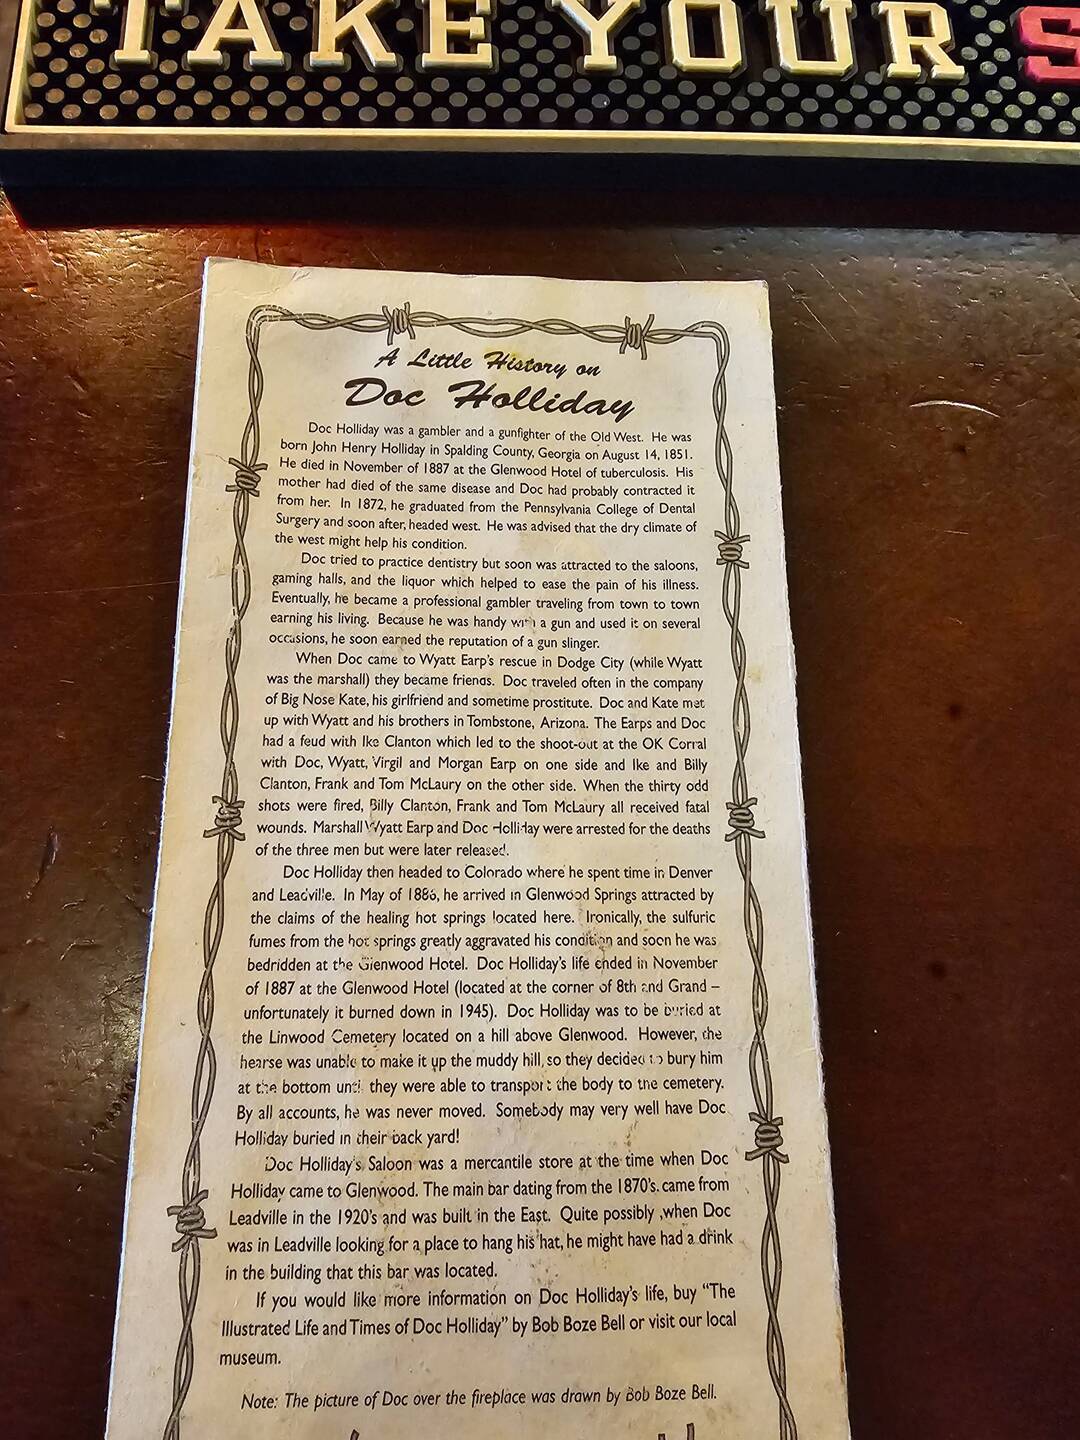 TAKE YOUR S
A Little History on
Doc Holliday
Doc Holliday was a gambler and a gunfighter of the Old West. He was
born John Henry Holliday in Spalding County, Georgia on August 14, 1851.
He died in November of 1887 at the Glenwood Hotel of tuberculosis. His
mother had died of the same disease and Doc had probably contracted it
from her. In 1872, he graduated from the Pennsylvania College of Dental
Surgery and soon after, headed west. He was advised that the dry climate of
the west might help his condition.
Doc tried to practice dentistry but soon was attracted to the saloons,
gaming halls, and the liquor which helped to ease the pain of his illness.
Eventually, he became a professional gambler traveling from town to town
earning his living. Because he was handy with a gun and used it on several
occasions, he soon earned the reputation of a gun slinger.
When Doc came to Wyatt Earp's rescue in Dodge City (while Wyatt
was the marshall) they became friends. Doc traveled often in the company
of Big Nose Kate, his girlfriend and sometime prostitute. Doc and Kate met
up with Wyatt and his brothers in Tombstone, Arizona. The Earps and Doc
had a feud with Ike Clanton which led to the shoot-out at the OK Corral
with Doc, Wyatt, Virgil and Morgan Earp on one side and Ike and Billy
Clanton, Frank and Tom McLaury on the other side. When the thirty odd
shots were fired, Billy Clanton, Frank and Tom McLaury all received fatal
wounds. Marshall Wyatt Earp and Doc Holliday were arrested for the deaths
of the three men but were later released.
Doc Holliday then headed to Colorado where he spent time in Denver
and Leadville. In May of 1886, he arrived in Glenwood Springs attracted by
the claims of the healing hot springs located here. Ironically, the sulfuric
fumes from the hot springs greatly aggravated his condition and soon he was
bedridden at the Glenwood Hotel. Doc Holliday's life ended in November
of 1887 at the Glenwood Hotel (located at the corner of 8th and Grand –
unfortunately it burned down in 1945). Doc Holliday was to be buried at
the Linwood Cemetery located on a hill above Glenwood. However, the
hearse was unable to make it up the muddy hill, so they decided to bury him
at the bottom until they were able to transport the body to the cemetery.
By all accounts, he was never moved. Somebody may very well have Doc
Holliday buried in their back yard!
Doc Holliday's Saloon was a mercantile store at the time when Doc
Holliday came to Glenwood. The main bar dating from the 1870's. came from
Leadville in the 1920's and was built in the East. Quite possibly ,when Doc
was in Leadville looking for a place to hang his hat, he might have had a drink
in the building that this bar was located.
If you would like more information on Doc Holliday's life, buy “The
Illustrated Life and Times of Doc Holliday” by Bob Boze Bell or visit our local
museum.
Note: The picture of Doc over the fireplace was drawn by Bob Boze Bell.